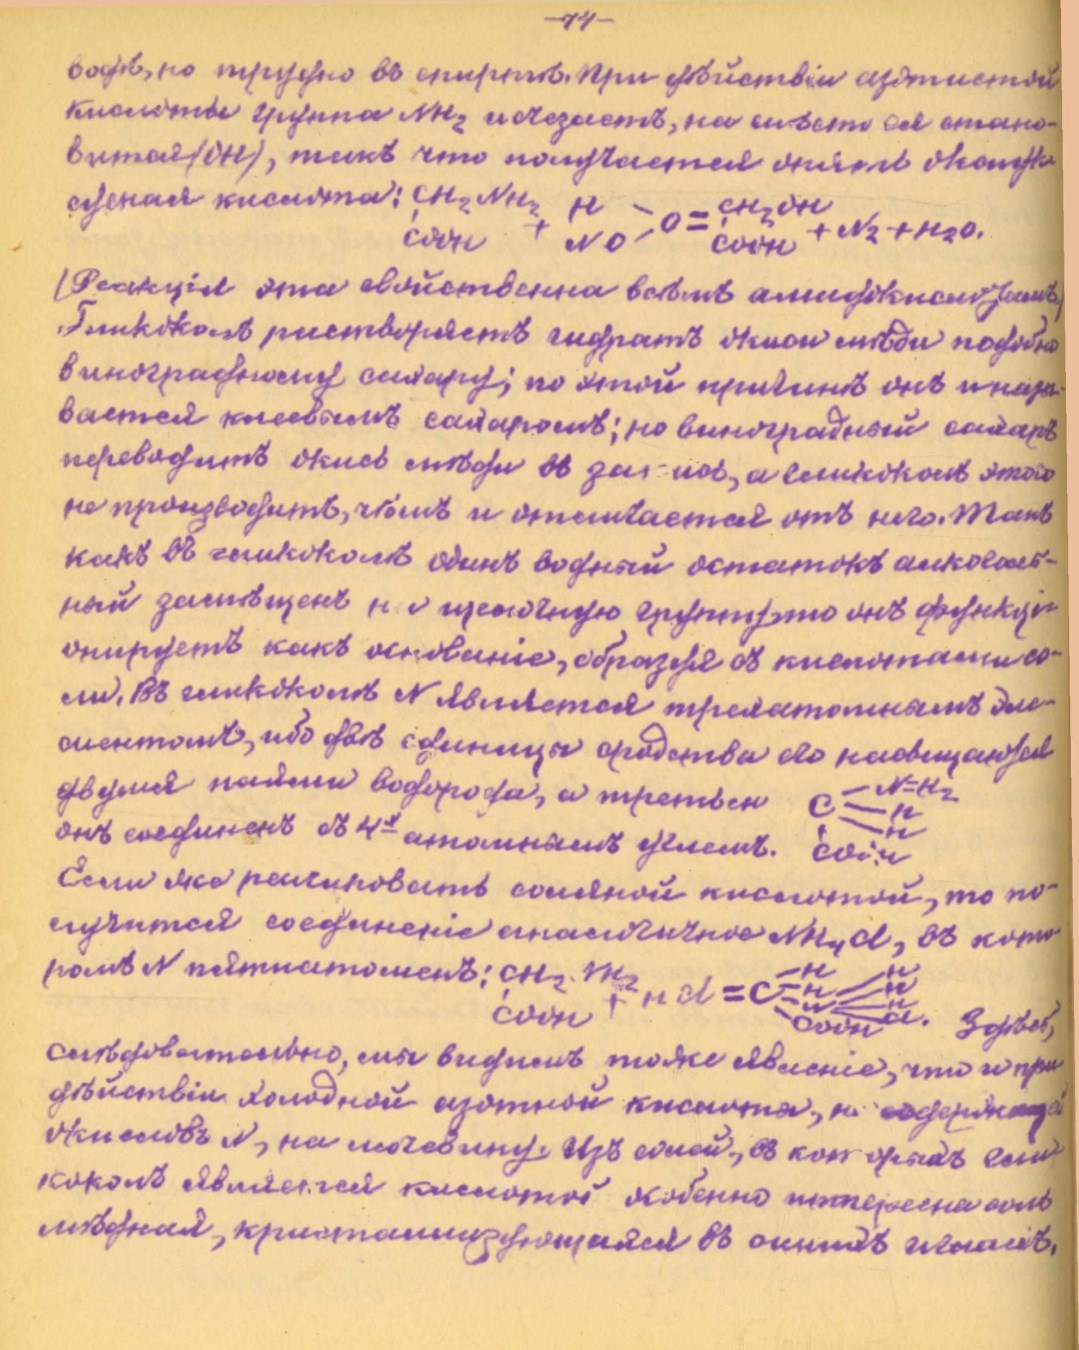 —74—
водѣ, но трудно въ спиртѣ. При дѣйствіи азотистой
кислоты группа NH2 исчезаетъ, на мѣсто ея стано-
вится (OH), такъ что получается опять оксиук-
сусная кислота: CH2NH2 + H NO O = CH2OH + N2 + H2O.
COOH COOH
(Реакція эта свойственна всѣмъ амидокислотамъ)
Гликоколъ растворяетъ гидратъ окиси мѣди подобно
виноградному сахару; по этой причинѣ онъ и назы-
вается клеевымъ сахаромъ; но виноградный сахаръ
переводитъ окись мѣди въ закись, а гликоколъ этого
не производитъ, чѣмъ и отличается отъ него. Такъ
какъ въ гликоколѣ одинъ водный остатокъ алкоголь-
ный замѣщенъ на щелочную группу, то онъ функці-
онируетъ какъ основаніе, образуя съ кислотами со-
ли. Въ гликоколѣ N является трехатомнымъ эле-
ментомъ, ибо двѣ единицы сродства его насыщаются
двумя паями водорода, а третьей C N=H2 H H
онъ соединенъ съ 4х атомнымъ углемъ. COOH
Если же реагировать соляной кислотой, то по-
лучится соединеніе аналогичное NH4Cl, въ кото-
ромъ N пятиатоменъ: CH2.NH2 + HCl = C H H N H H H Cl.
COOH COOH Здѣсь,
слѣдовательно, мы видимъ тоже явленіе, что и при
дѣйствіи холодной азотной кислоты, не содержащей
окисловъ N, на мочевину. Изъ солей, въ которыхъ гли-
коколъ является кислотой особенно интересна соль
мѣдная, кристаллизующаяся въ синихъ иглахъ.